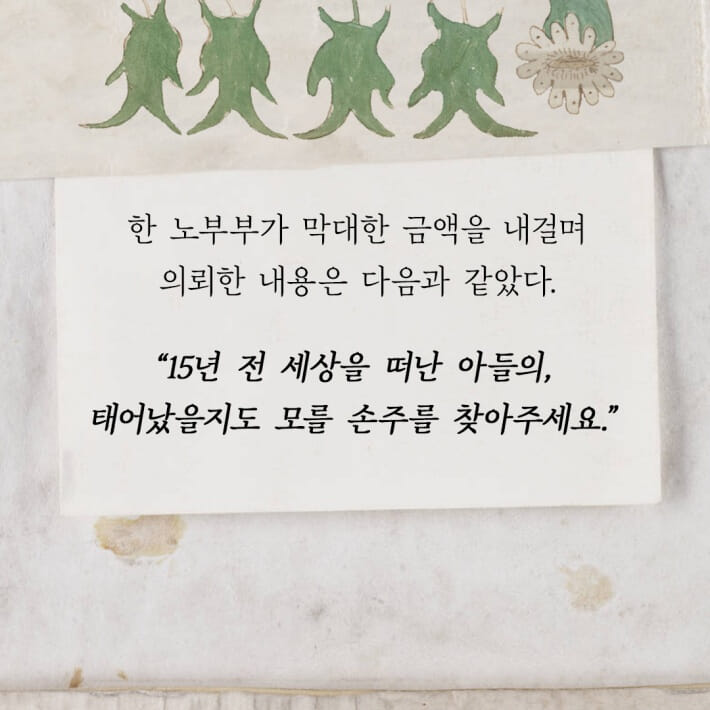 한 노부부가 막대한 금액을 내걸며
의뢰한 내용은 다음과 같았다.
“15년 전 세상을 떠난 아들의,
태어났을지도 모를 손주를 찾아주세요.”